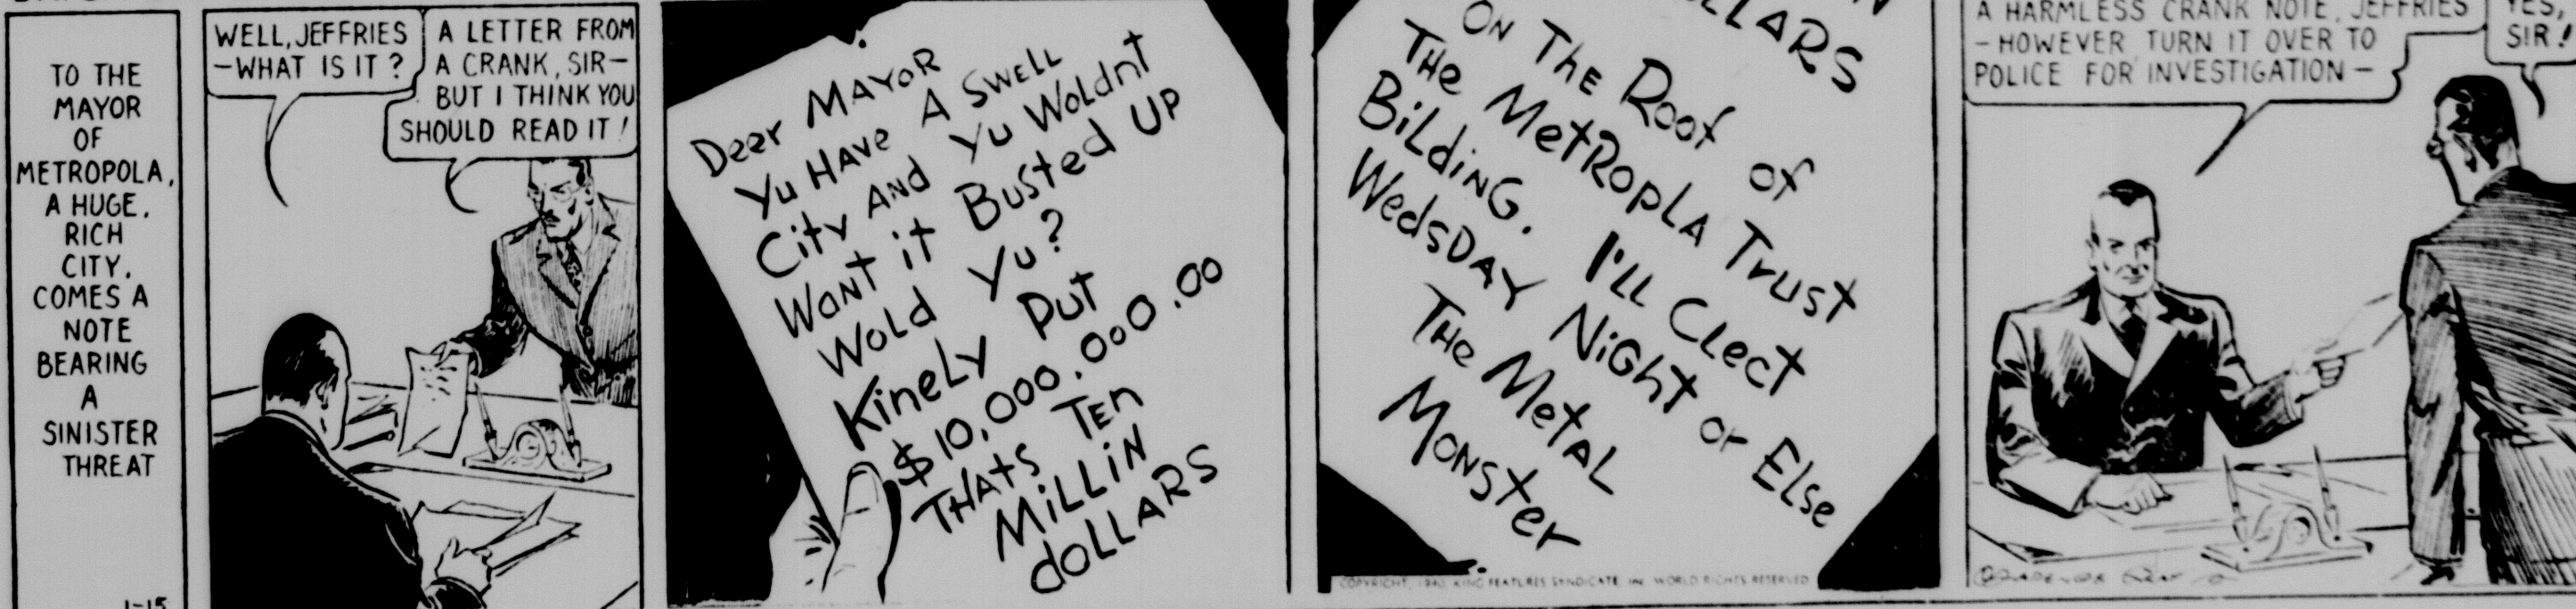 TO THE
MAYOR
OF
METROPOLA,
A HUGE,
RICH
CITY,
COMES A
NOTE
BEARING
A
SINISTER
THREAT
1-15
WELL, JEFFRIES
-WHAT IS IT?
A LETTER FROM
A CRANK, SIR-
BUT I THINK YOU
SHOULD READ IT!
Deer MAYOR
Yu HAVe A SWeLL
City AND Yu Woldnt
WANT it Busted UP
Wold Yu?
KineLY Put
$10,000,000.00
THAts TEn
MiLLiN
doLLARS
LLARS
ON THE Roof of
THe MetRopLA Trust
BiLdiNG. I'LL CLect
WedsDAY NiGHt or Else
THe MetAL
MoNSter
COPYRIGHT, KING FEATURES SYNDICATE INC. WORLD RIGHTS RESERVED
A HARMLESS CRANK NOTE, JEFFRIES
- HOWEVER TURN IT OVER TO
POLICE FOR INVESTIGATION -
YES,
SIR!